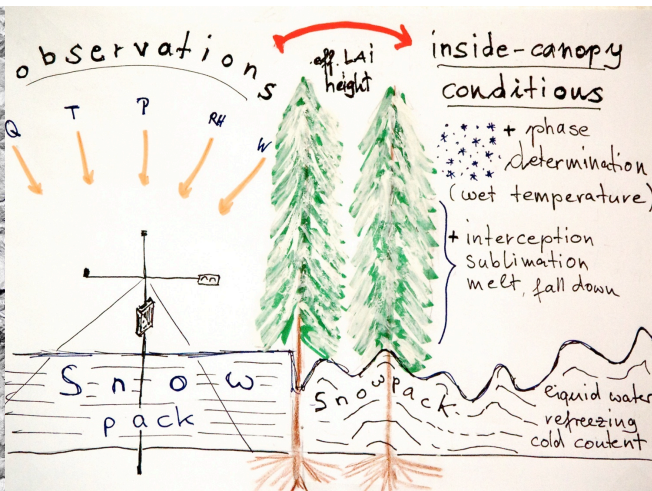 observations
Q T P RH W
eff. LAi
height
inside-canopy
conditions
+ phase
determination
(wet temperature)
+ interception
sublimation
melt, fall down
Snow
pack
Snowpack
liquid water
refreezing
cold content